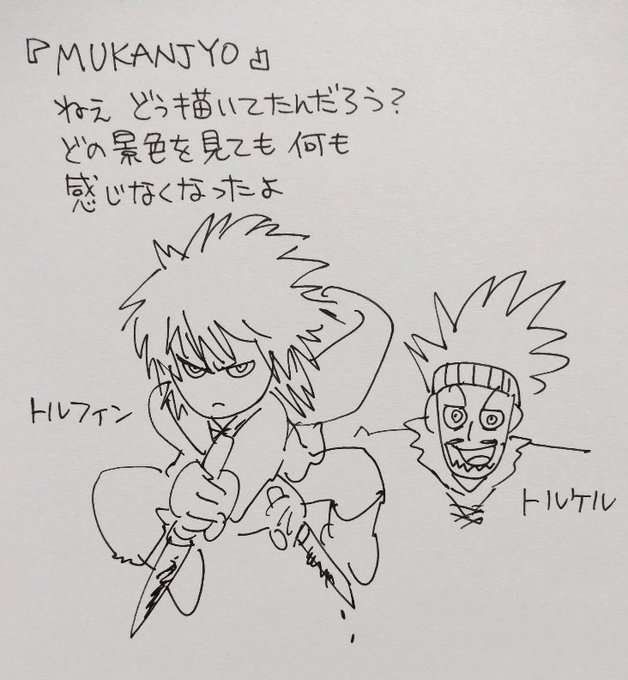 『MUKANJYO』
ねぇ どう描いてたんだろう?
どの景色を見ても 何も
感じなくなったよ
トルフィン
トルケル